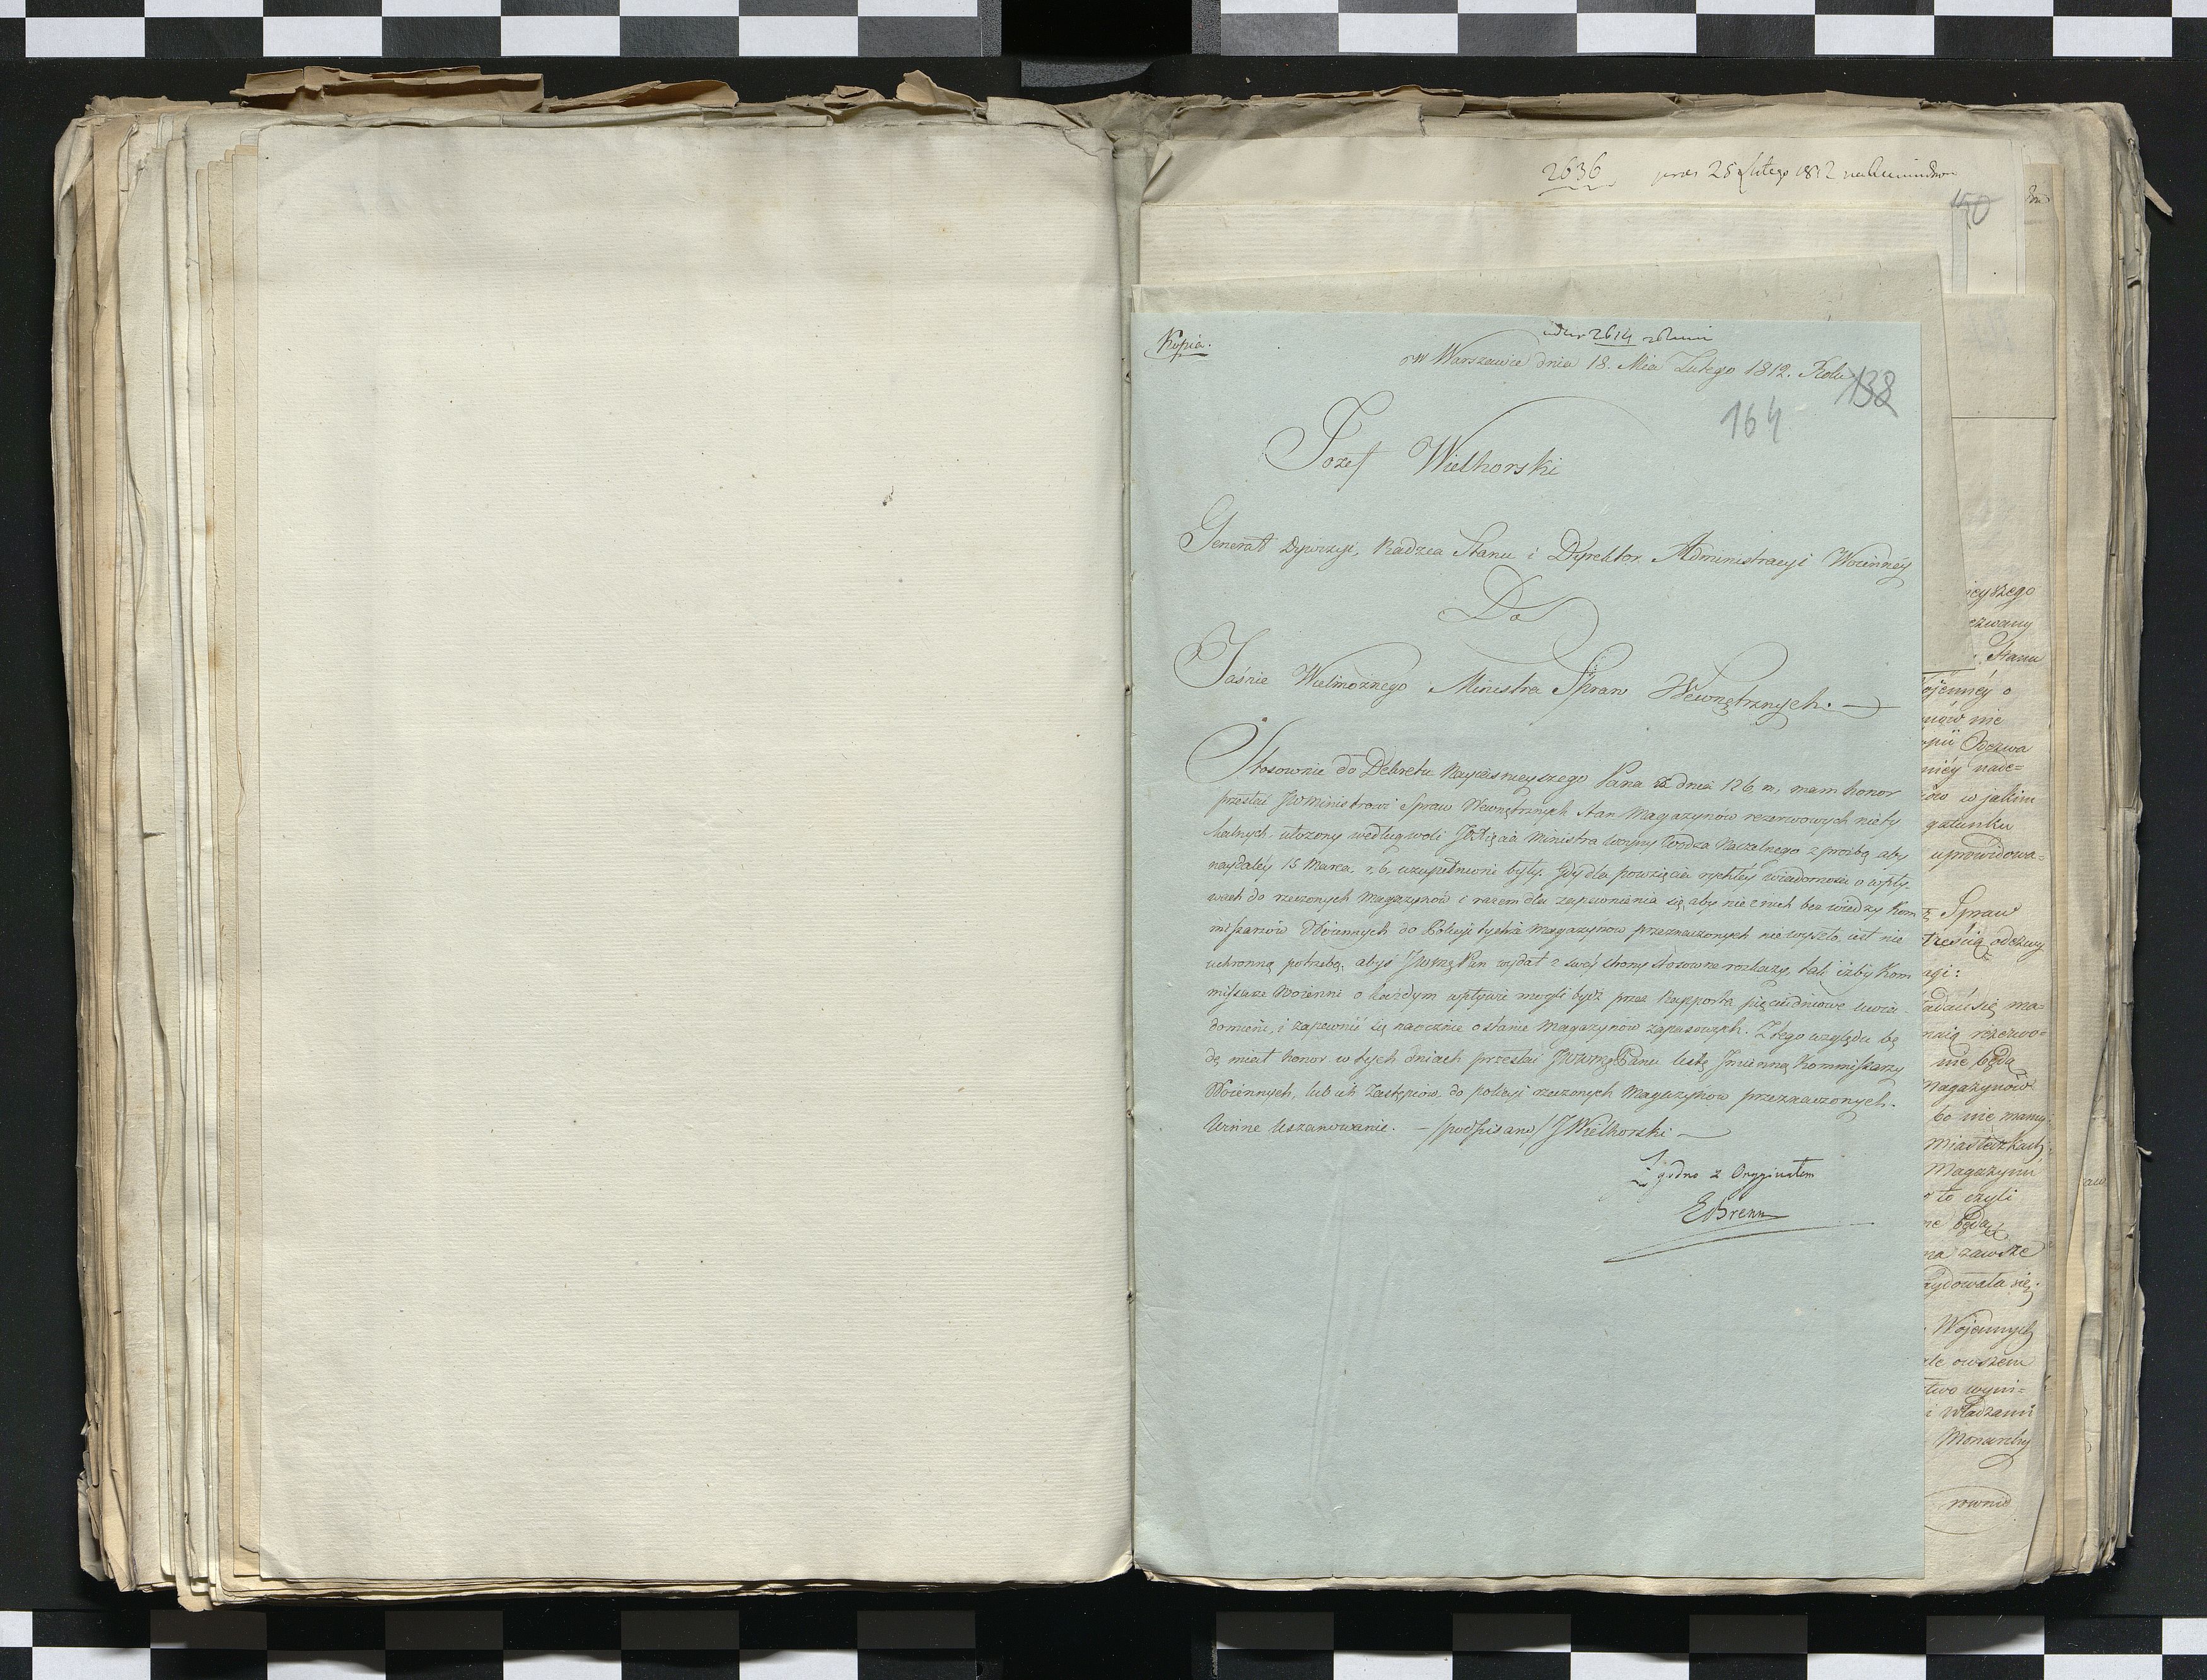 2636 25 Lutego 1812
150
Kopia.
2614
w Warszawie dnia 18. Mca Lutego 1812. Roku
138
164
Jozef Wielhorski
Generał Dywizyi, Radzca Stanu i Dyrektor Administracyi Woienney
Do
Jaśnie Wielmożnego Ministra Spraw Wewnętrznych. —
Stosownie do Dekretu Nayiaśnieyszego Pana z dnia 12 b. m, mam honor
przesłać JWMinistrowi Spraw Wewnętrznych stan Magazynów rezerwowych niety
kalnych, ułożony według woli JOXięcia Ministra woyny Wodza Naczelnego z prośbą aby
naydaléy 15 Marca. r. b. uzupełnione były. Gdy dla powzięcia rychłéy wiadomości o wpły-
wach do rzeczonych Magazynów i razem dla zapewnienia się, aby nic z nich bez wiedzy Kom
missarzów Woiennych do Policyi tychże Magazynów przeznaczonych nie wyszło, iest nie
uchronną potrzebą, abyś JWWny Pan wydał z swéy strony stosowne rozkazy, tak iżby Kom
missarze Woienni o każdym wpływie mogli bydź przez Rapporta pięciodniowe uwia-
domieni, i zapewnić się naocznie o stanie Magazynów zapasowych. Z tego względu bę
dę miał honor w tych dniach przesłać JWWnemu Panu listę Jmienną Kommissarzy
Woiennych, lub ich Zastępców do policyi rzeczonych Magazynów przeznaczonych.
Winne Uszanowanie. — /podpisano/ JWielhorski —
Zgodno z Oryginałem
EdBrenn
ieyszego
ezwany
Stanu
ojennéy o
nie
Odezwa
niéy nade=
w jakim
gatunku
uprowidowa=
Spraw
treścią odezwy
agi:
się ma=
rezerwo=
nie będą
Magazynów
bo nie mamy
Miasteczkach
Magazynu
to czyli
ne będą
na zawsze
aydowała się.
Wojennych
ale owszem
two wyni=
i Władzami
Monarchy
rownie